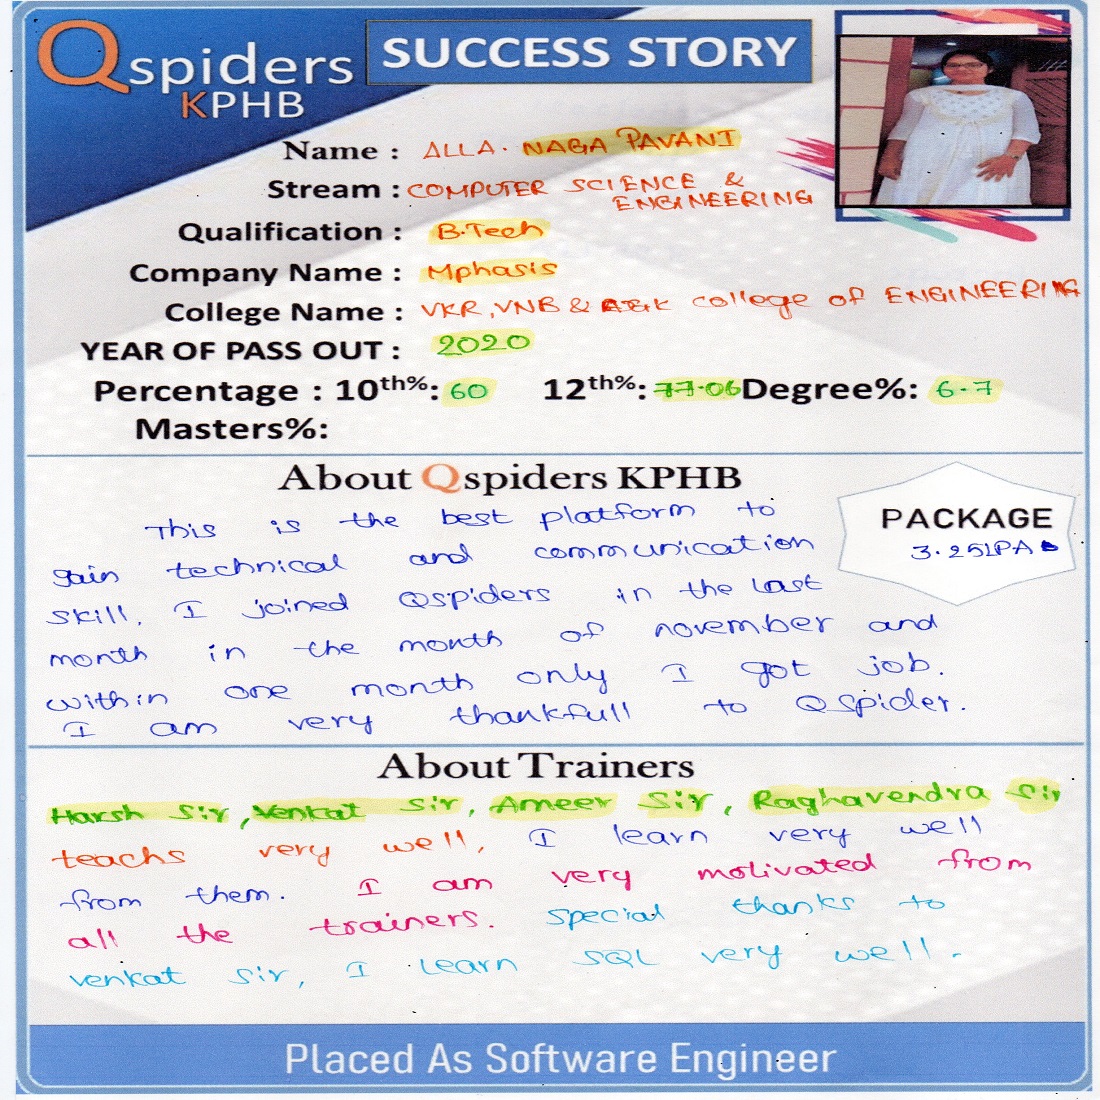 Qspiders SUCCESS STORY
KPHB
Name : ALLA. NAGA PAVANI
Stream : COMPUTER SCIENCE &
ENGINEERING
Qualification : B.Tech
Company Name : Mphasis
College Name : VKR, VNB & AGK College of ENGINEERING
YEAR OF PASS OUT : 2020
Percentage : 10th%: 60 12th%: 77.06 Degree%: 6.7
Masters%:
About Qspiders KPHB
This is the best platform to
gain technical and communication
skill, I joined Qspiders in the last
month in the month of november and
within one month only I got job.
I am very thankfull to Qspider.
PACKAGE
3.25LPA
About Trainers
Harsh Sir, Venkat Sir, Ameer Sir, Raghavendra Sir
teachs very well, I learn very well
from them. I am very motivated from
all the trainers. Special thanks to
venkat Sir, I learn SQL very well.
Placed As Software Engineer